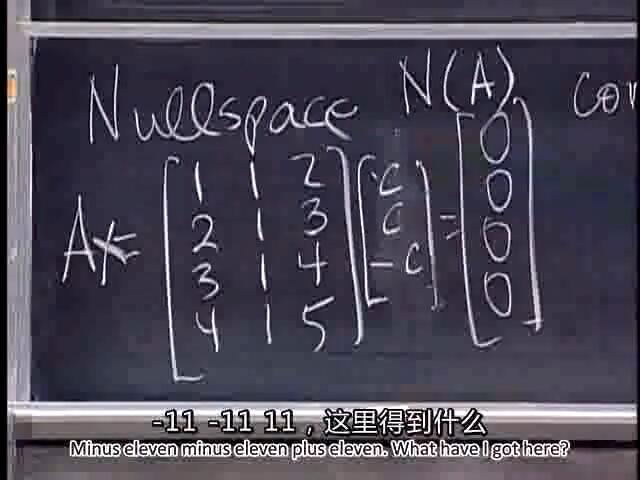 Nullspace N(A) con
Ax= [1 1 2] [c] = [0]
[2 1 3] [c] [0]
[3 1 4] [-c] [0]
[4 1 5] [0]
-11 -11 11，这里得到什么
Minus eleven minus eleven plus eleven. What have I got here?